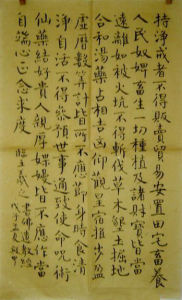 持淨戒者不得販賣貿易安置田宅畜養
人民奴婢畜生一切種植及諸財寶皆當
遠離如避火坑不得斬伐草木墾土掘地
合和湯藥占相吉凶仰觀星宿推步盈
虛曆數算計皆所不應節身時食清
淨自活不得參預世事通致使命呪術
仙藥結好貴人親厚媟嫚皆不應作當
自端心正念求度
臨王羲之